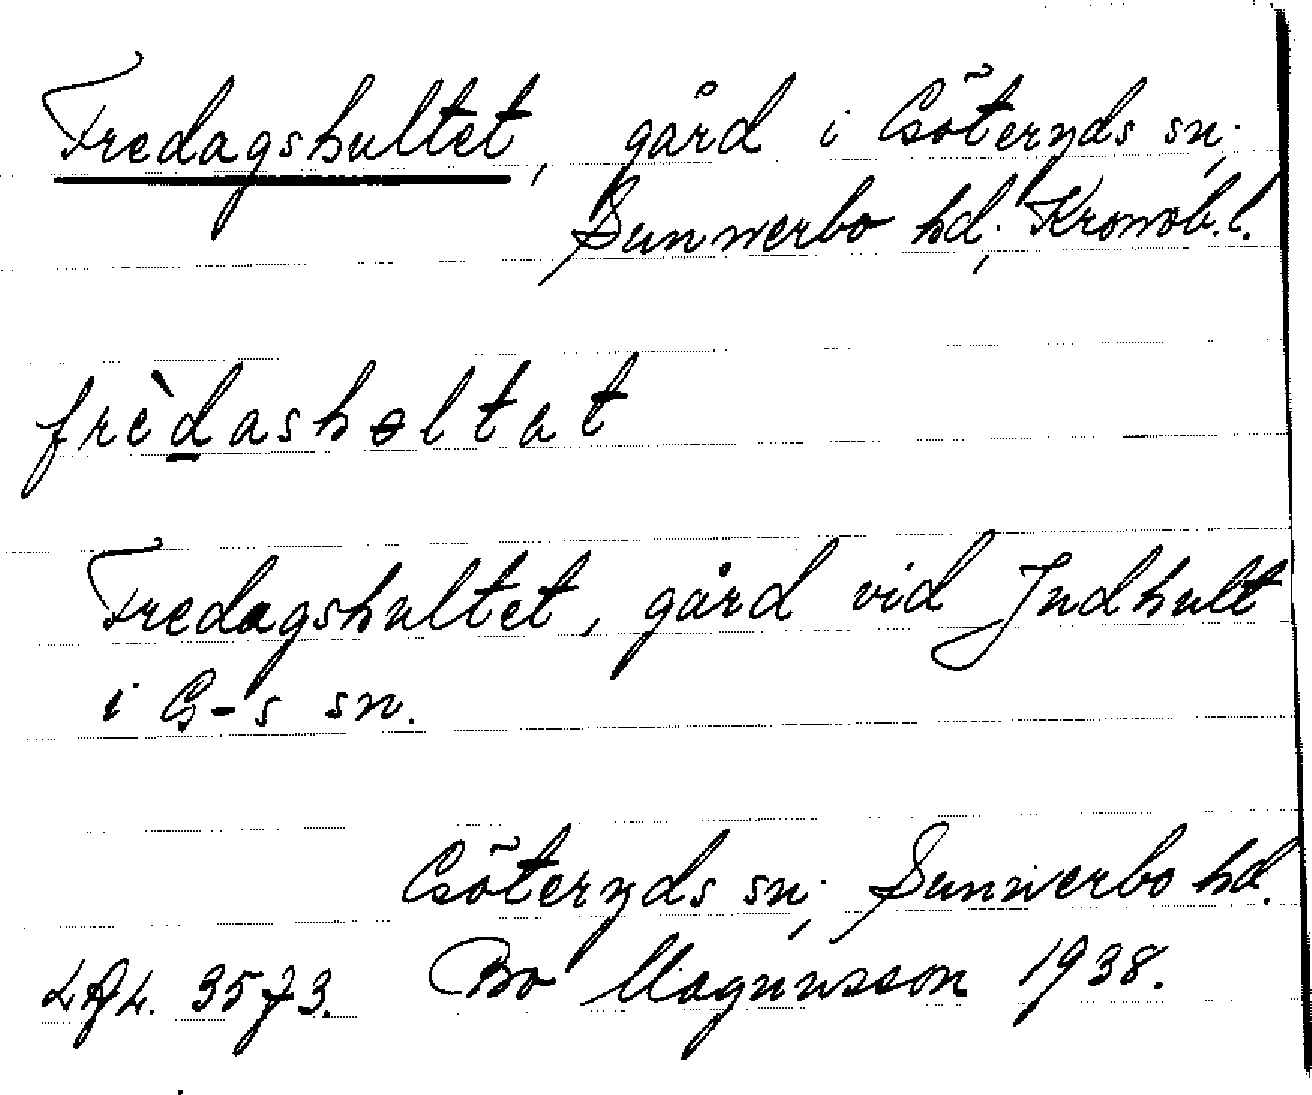 Fredagshultet, gård i Göteryds sn,
Sunnerbo hd., Kronob. l.
frèdasholtat
Fredagshultet, gård vid Indhult
i G-s sn.
Göteryds sn., Sunnerbo hd.
3573. Bo Magnusson 1938.